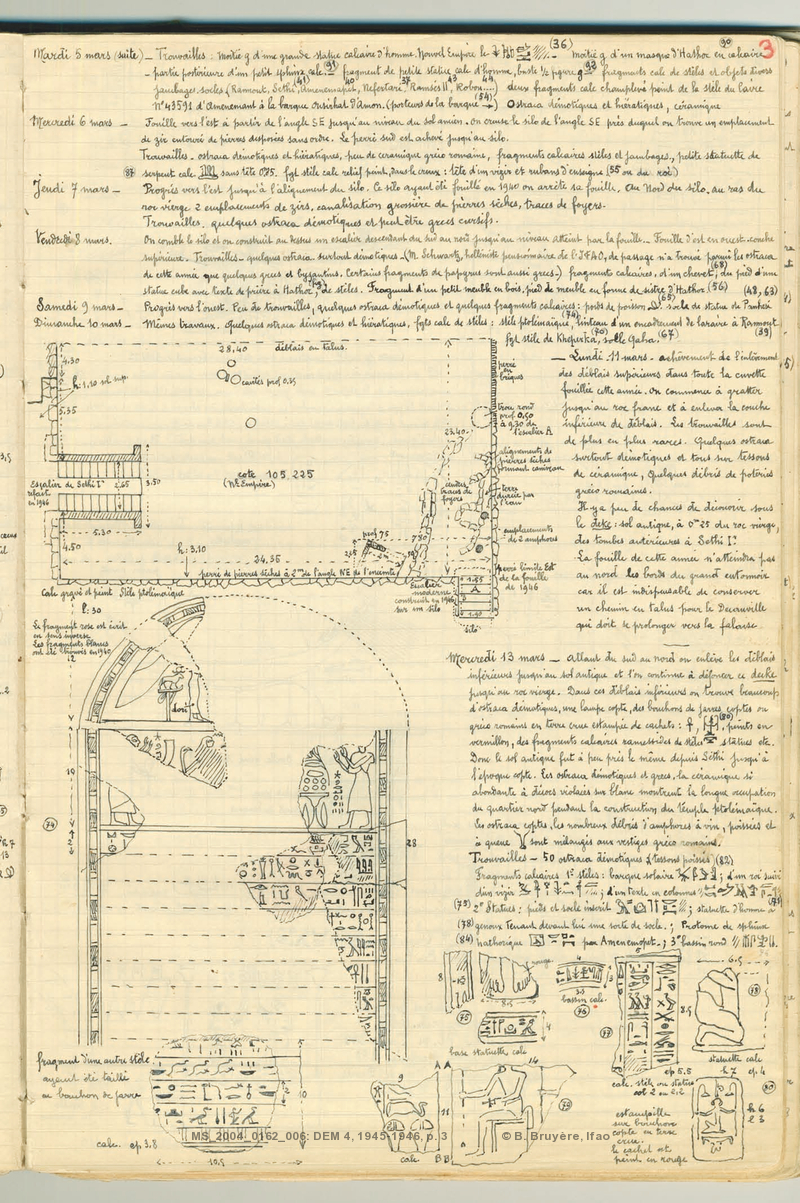 3
Mardi 5 mars (suite) _ Trouvailles : Moitié g d'une grande statue calcaire d'homme. Nouvel Empire (36) Moitié g d'un masque d'Hathor en calcaire (90)
_ partie postérieure d'un petit sphinx calc. (91) fragment de petite statue calc d'homme, buste 1/2 figure g (93) fragments calc de stèles et objets divers
jambages, socles (Ramout, Sethi, Amenemapit, Nefertari, Ramsès II, Robou....) deux fragments calc champlevé peint de la stèle du Caire
N° 43591 d'Amenemant à la barque Ousirhat D'Amon. (porteurs de la barque) (54) Ostraca démotiques et hiératiques, céramique
Mercredi 6 mars _ Fouille vers l'est à partir de l'angle SE jusqu'au niveau du sol ancien. On creuse le silo de l'angle SE près duquel on trouve un emplacement
de zir entouré de pierres disposées sans ordre. Le perré sud est achevé jusqu'au silo.
Trouvailles _ ostraca démotiques et hiératiques, peu de céramique gréco romaine, fragments calcaires stèles et jambages, petite statuette de
serpent calc sans tête 0.25. fgt stèle calc relief peint, dans le creux : tête d'un vizir et rubans d'enseigne (55 ou du roi)
Jeudi 7 mars _ Progrès vers l'est jusqu'à l'alignement du silo. Ce silo ayant été fouillé en 1940 on arrête sa fouille. Au Nord du silo, au ras du
roc vierge 2 emplacements de zirs, canalisation grossière de pierres sèches, traces de foyers.
Trouvailles, quelques ostraca démotiques et peut être grecs cursifs.
Vendredi 8 mars. On comble le silo et on construit au dessus un escalier descendant du sud au nord jusqu'au niveau atteint par la fouille _ Fouille d'est en ouest. couche
supérieure. Trouvailles _ quelques ostraca surtout démotiques _ (M. Schwartz, helléniste pensionnaire de l'IFAO, de passage n'a trouvé parmi les ostraca
de cette année que quelques grecs et byzantins. Certains fragments de papyrus sont aussi grecs _) fragments calcaires, d'un chevet (68), du pied d'une
statue cube avec texte de prière à Hathor, de stèles. Fragment d'un petit meuble en bois, pied de meuble en forme de sistre d'Hathor (56) (48, 63)
Samedi 9 mars _ Progrès vers l'ouest. Peu de trouvailles, quelques ostraca démotiques et quelques fragments calcaires : poids de poisson, socle de statue de Panheri (65)
Dimanche 10 mars _ Mêmes travaux. Quelques ostraca démotiques et hiératiques, fgts calc de stèles : stèle ptolémaïque, (74) linteau d'un encadrement de laraire à Ramont (39)
fgt stèle de Kheperka, (70) socle Gaha. (67)
28,40 déblais en talus.
4.30
h: 1,10 sol supr
5,35
cavités prof 0,25
cote 105,225
(NE Empire)
Escalier de Sethi Ier refait en 1946
2,65
3.50
5.30
4.50
h: 3,10
24.35
perré de pierres sèches à 2m de l'angle NE de l'enceinte
perré en briques
trou rond prof 0,50 à 9,30 de l'escalier A
23.40
alignements de pierres sèches formant caniveau
cendres traces de foyers
terre durcie par l'eau
emplacements de 2 amphores
prof 75
780
Perré limite Est de la fouille de 1946
Escalier moderne construit en 1946 sur un silo
A
silo
_ Lundi 11 mars _ achèvement de l'enlèvement
des déblais supérieurs dans toute la cuvette
fouillée cette année. On commence à gratter
jusqu'au roc franc et à enlever la couche
inférieure de déblais. Les trouvailles sont
de plus en plus rares. Quelques ostraca
surtout démotiques et tous sur tessons
de céramique, Quelques débris de poteries
gréco romaines.
Il y a peu de chances de découvrir sous
le dekc : sol antique, à 0m25 du roc vierge,
des tombes antérieures à Sethi Ier
La fouille de cette année n'atteindra pas
au nord les bords du grand entonnoir
car il est indispensable de conserver
un chemin en talus pour le Decauville
qui doit se prolonger vers la falaise.
Calc gravé et peint Stèle ptolémaïque
l: 30
Le fragment rose est écrit en sens inverse
Les fragments blancs ont été trouvés en 1940
12
doré
19
(74)
2
28
Mercredi 13 mars _ Allant du sud au nord on enlève les déblais
inférieurs jusqu'au sol antique et l'on continue à défoncer ce decke
jusqu'au roc vierge. Dans ces déblais inférieurs on trouve beaucoup
d'ostraca démotiques, une lampe copte, des bouchons de jarres coptes ou
gréco romains en terre crue estampée de cachets : (80), peints en
vermillon, des fragments calcaires ramessides de stèles statues etc.
Donc le sol antique fut à peu près le même depuis Séthi jusqu'à
l'époque copte. Les ostraca démotiques et grecs, la céramique si
abondante à décors violacés sur blanc montrent la longue occupation
du quartier nord pendant la construction du temple ptolémaïque.
Les ostraca coptes, les nombreux débris d'amphores à vin, poissées et
à queue sont mélangés aux vestiges gréco romains.
Trouvailles _ 50 ostraca démotiques (tessons poissés) (82)
Fragments calcaires 1° stèles : barque solaire ; d'un roi suivi
d'un vizir ; d'un texte en colonnes
(75) 2° Statues : pieds et socle inscrit ; statuette d'homme à
(78) genoux tenant devant lui une sorte de socle. ; Protome de sphinx
(84) hathorique par Amenemopet. ; 3° bassin rond
8
rouge
8.5
(75)
4
3.5
bassin calc
(76)
base statuette calc
4
(77)
8,5
calc. stèle ou statue
ep 5.5
6.5
(78)
statuette calc
h 7 ep. 4
fragment d'une autre stèle
ayant été taillé
en bouchon de jarre
10
calc. ep. 3.8
10,5
9
A A
11
calc
B B
14
(79)
estampille
sur bouchon
copte en terre
crue.
le cachet est
peint en rouge
(80)
h 6
l 3
MS_2004_0162_006: DEM 4, 1945-1946, p. 3
© B. Bruyère, Ifao